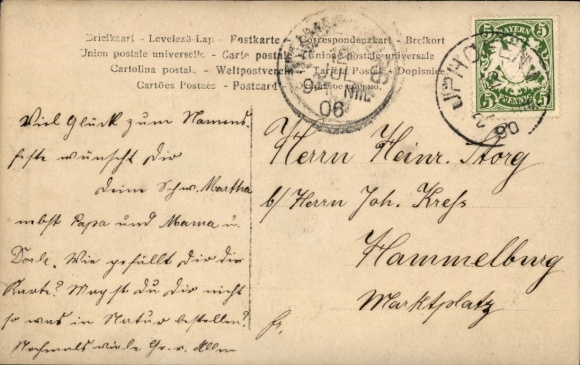 Briefkaart - Levelező-Lap - Postkarte - Correspondenzkart - Brefkort
Union postale universelle - Carte postale - Unione postale universale
Cartolina postale - Weltpostverein - Tarjeta Postal - Dopisnice
Cartões Postaes - Postcard
BAYERN
5 5
5 PFENNIG 5
9 NM.
06
Viel Glück zum Namens-
feste wünscht Dir
Deine Schw. Martha
nebst Papa und Mama u.
Wie gefällt Dir die
Karte? Magst du Dir nicht
so was in Natur bestellen?
Nochmals viele Gr. v. Allen
Herrn Heinr. Storg
b/ Herrn Joh. Kreß
Hammelburg
Marktplatz
fr.